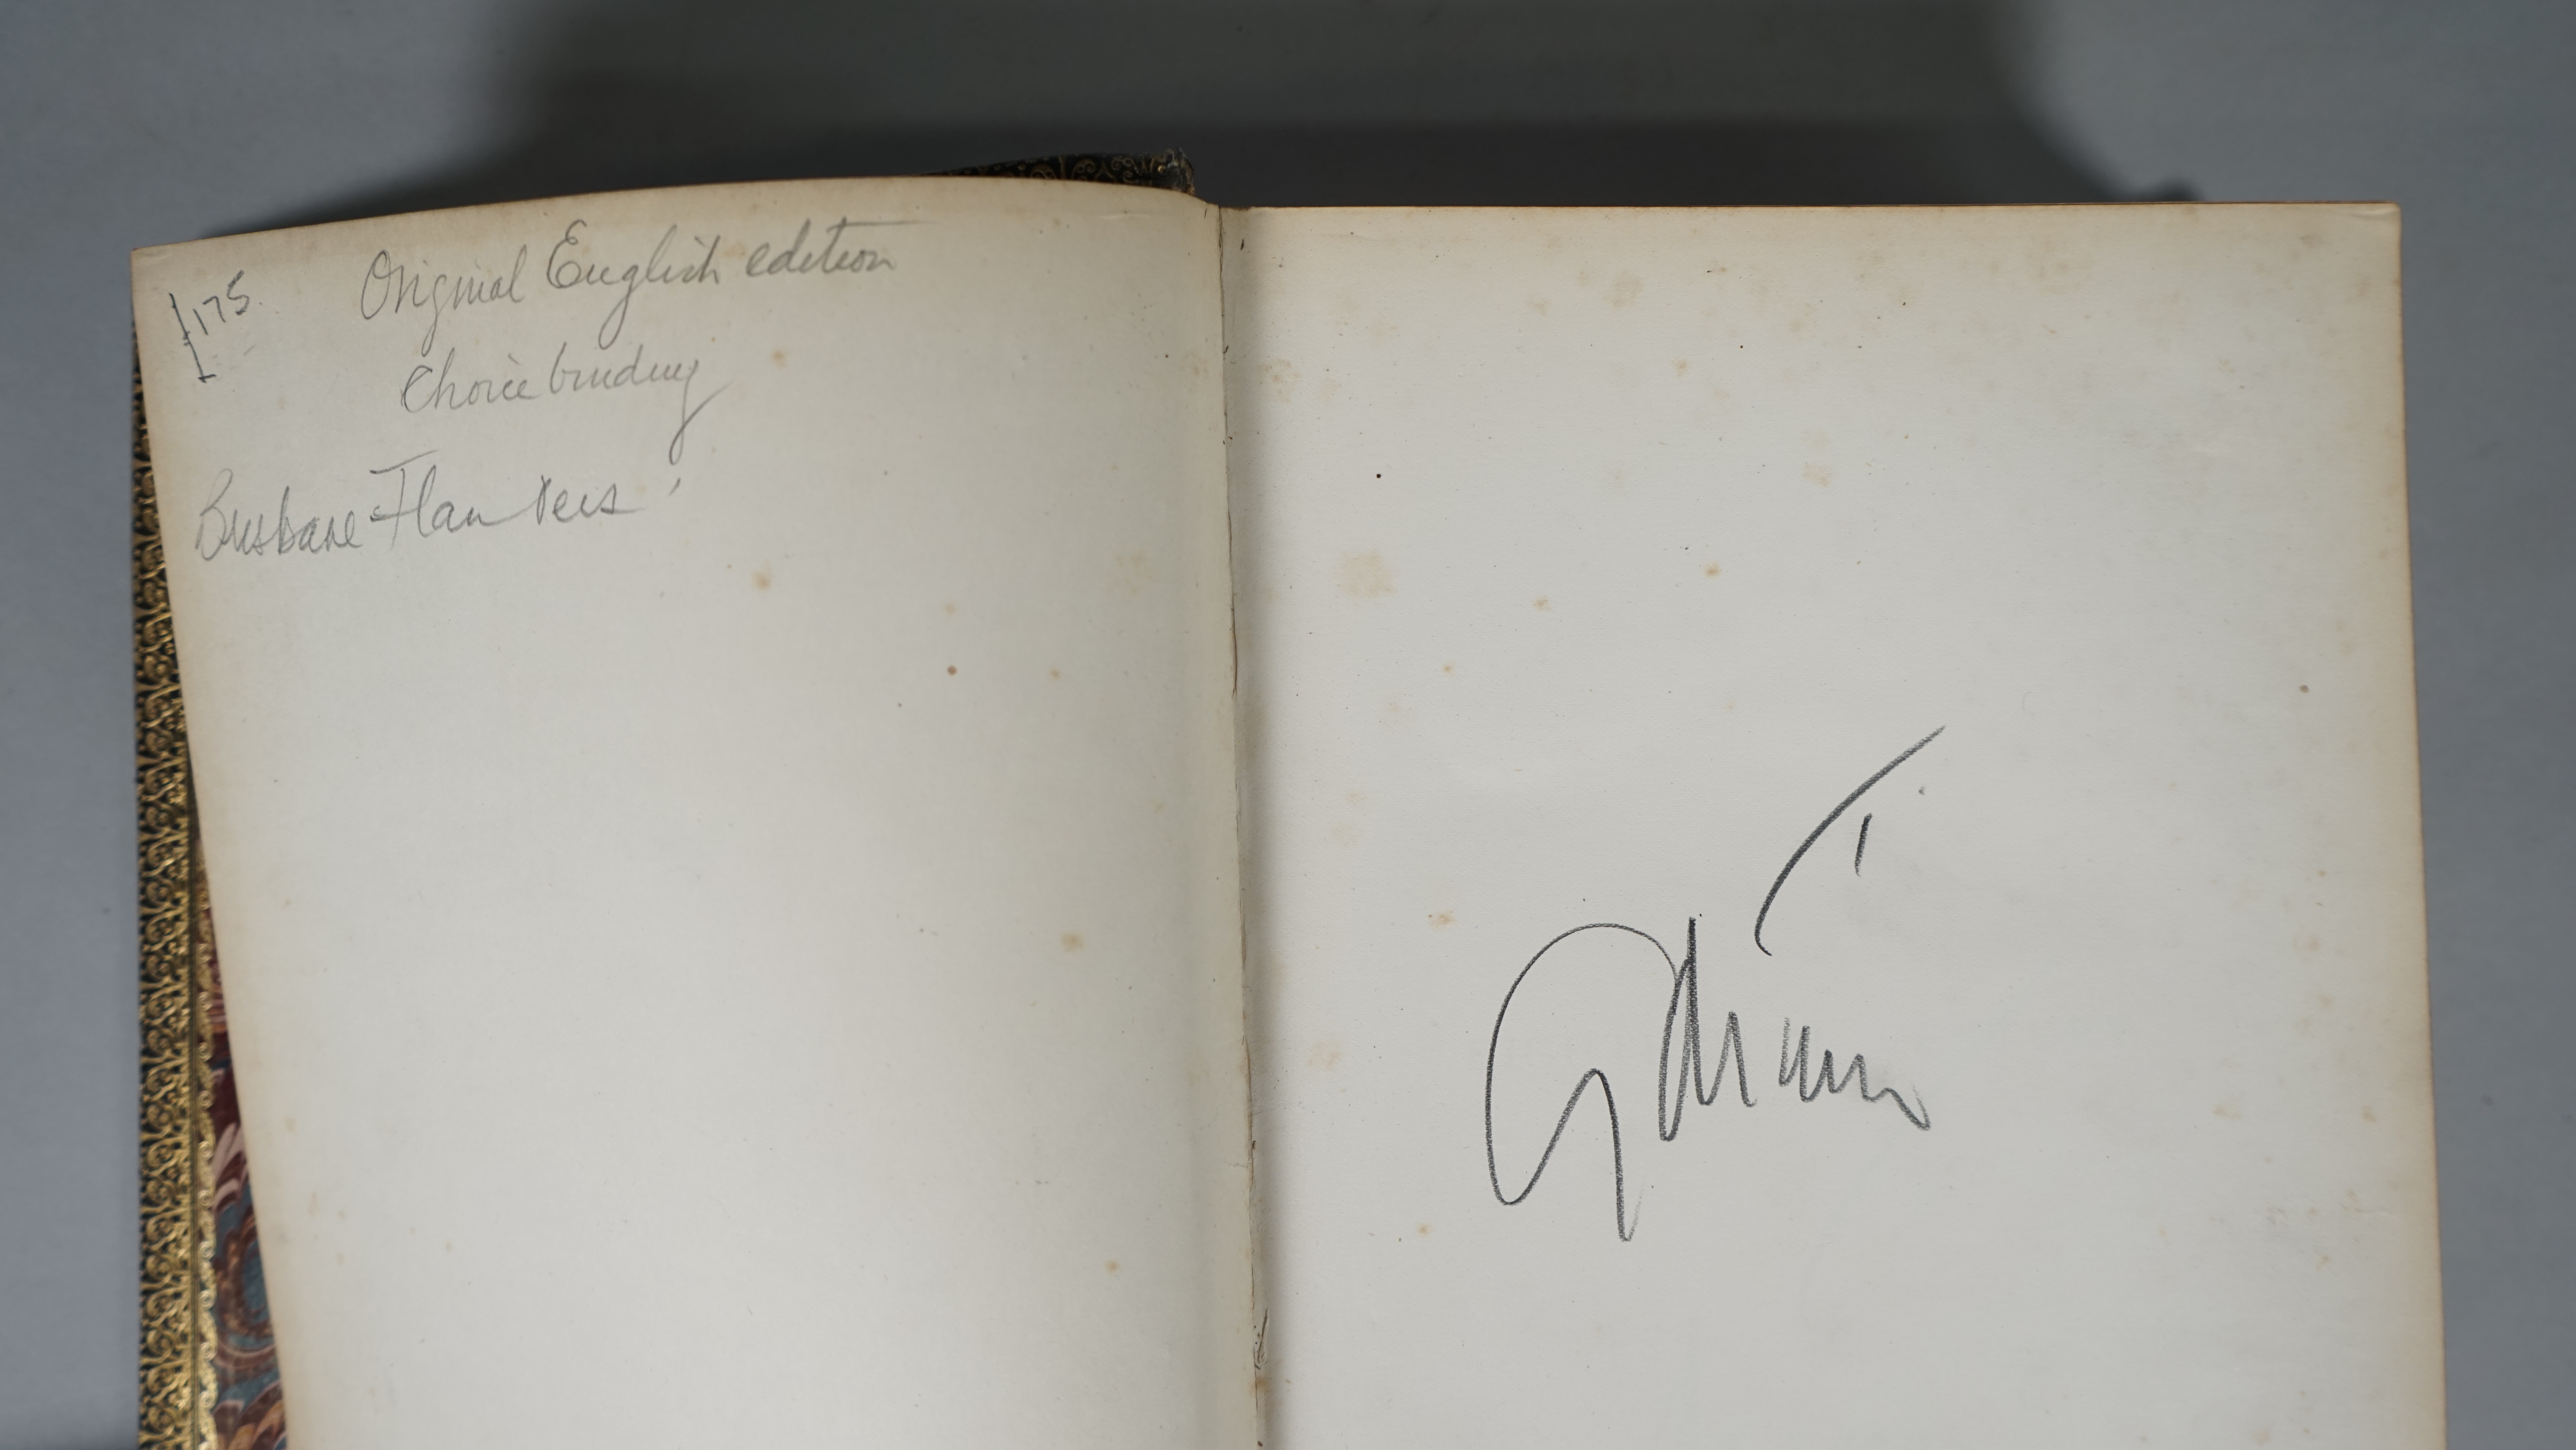 175
Original English edition
Choice binding
Brisbane-Flanders